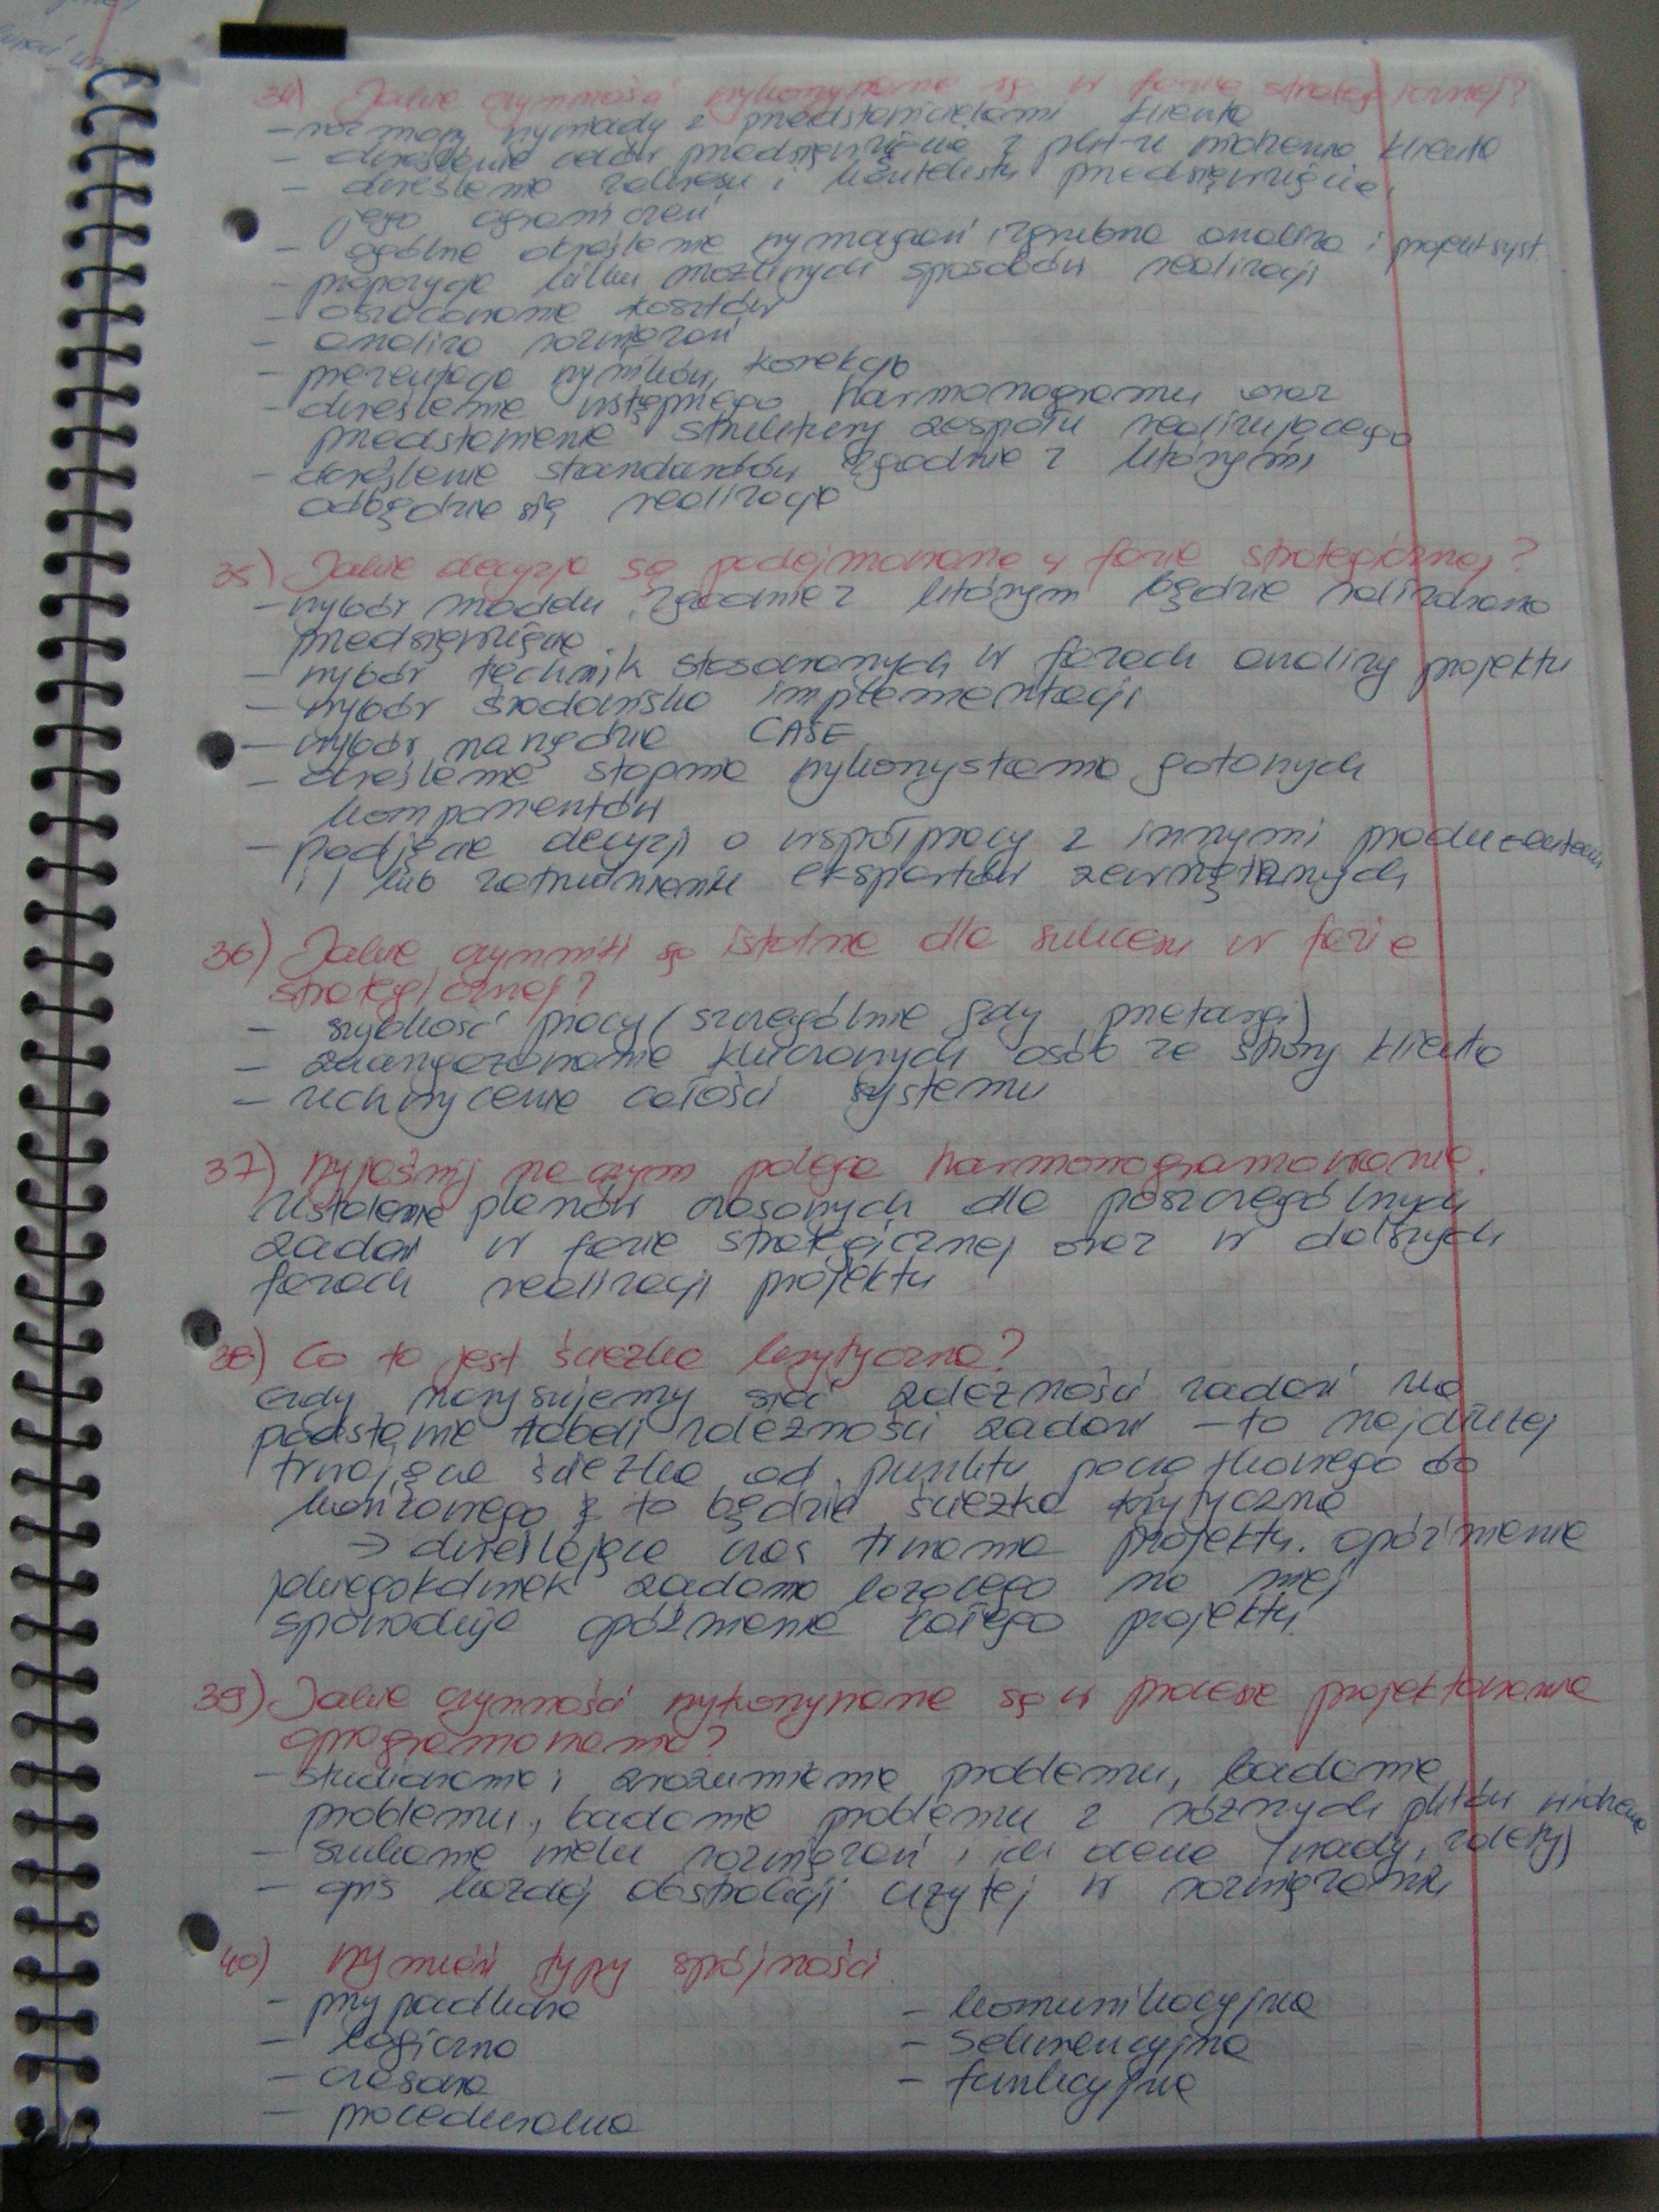 34) Jakie czynności wykonywane są w fazie strategicznej?
- rozmowy, wywiady z przedstawicielami klienta
- określenie celów przedsięwzięcia z pkt-u widzenia klienta
- określenie zakresu i kontekstu przedsięwzięcia,
jego ograniczeń
- ogólne określenie wymagań, zgrubna analiza i projekt syst.
- propozycja kilku możliwych sposobów realizacji
- oszacowanie kosztów
- analiza rozwiązań
- prezentacja wyników, korekcja
- określenie wstępnego harmonogramu oraz
przedstawienie struktury zespołu realizującego
- określenie standardów zgodnie z którymi
odbędzie się realizacja
35) Jakie decyzje są podejmowane w fazie strategicznej?
- wybór modelu, zgodnie z którym będzie realizowane
przedsięwzięcie
- wybór technik stosowanych w fazach analizy projektu
- wybór środowiska implementacji
- wybór narzędzia CASE
- określenie stopnia wykorzystania gotowych
komponentów
- podjęcie decyzji o współpracy z innymi producentami
i / lub zatrudnieniu ekspertów zewnętrznych
36) Jakie czynniki są istotne dla sukcesu w fazie
strategicznej?
- szybkość pracy (szczególnie gdy przetargi)
- zaangażowanie kluczowych osób ze strony klienta
- uchwycenie całości systemu
37) Wyjaśnij na czym polega harmonogramowanie.
Ustalenie planów czasowych dla poszczególnych
zadań w fazie strategicznej oraz w dalszych
fazach realizacji projektu
38) Co to jest ścieżka krytyczna?
Gdy narysujemy sieć zależności zadań na
podstawie tabeli zależności zadań - to najdłużej
trwająca ścieżka od punktu początkowego do
końcowego to będzie ścieżka krytyczna
→ określająca czas trwania projektu. opóźnienie
jakiegokolwiek zadania leżącego na niej
spowoduje opóźnienie całego projektu.
39) Jakie czynności wykonywane są w procesie projektowania
oprogramowania?
- studiowanie i zrozumienie problemu, badanie
problemu, badanie problemu z różnych pktów widzenia
- szukanie wielu rozwiązań i ich ocena (wady, zalety)
- opis każdej abstrakcji użytej w rozwiązaniu
40) Wymień typy spójności.
- przypadkowa
- logiczna
- czasowa
- proceduralna
- komunikacyjna
- sekwencyjna
- funkcyjna